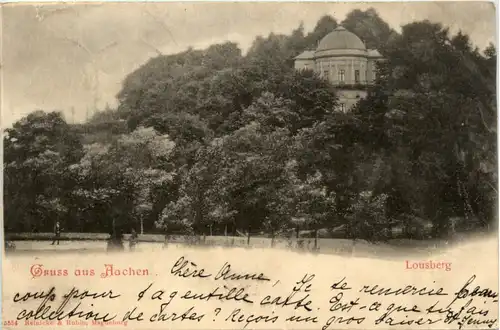 Gruss aus Aachen.
Lousberg
Chère Anne, Je te remercie beau
coup pour ta gentille carte. Est-ce que tu fais
collection de cartes? Reçois un gros baiser de Jenny
5554 Reinicke & Rubin, Magdeburg